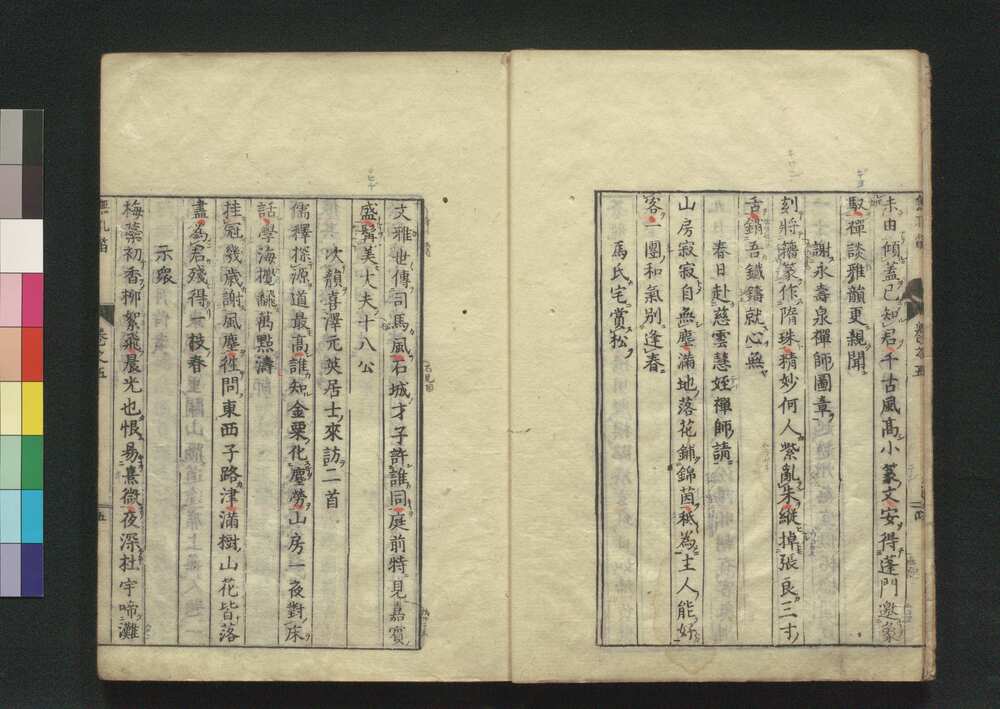 未由傾蓋已知君千古風高小篆文安得蓬門邀象
馭禪談雅韻更親聞
謝永壽泉禪師圖章
刻將籀篆作隋珠精妙何人紫亂朱縱掉張良三寸
舌銷吾鐵鑄就心無
春日赴慈雲慧姪禪師請
山房寂寂自無塵滿地落花鋪錦茵秪為主人能好
客一團和氣別逢春
馬氏宅賞松
文雅也傳司馬風石城才子許誰同庭前特見嘉賓
盛髯美丈夫十八公
次韻喜澤元英居士來訪二首
儒釋探源道最高誰知金粟化塵勞山房一夜對床
話學海攪翻萬點濤
挂冠幾歲謝風塵徃問東西子路津滿樹山花皆落
盡為君殘得一枝春
示眾
梅蘂初香柳絮飛晨光也恨易熹微夜深杜宇啼灘
卷之五
五